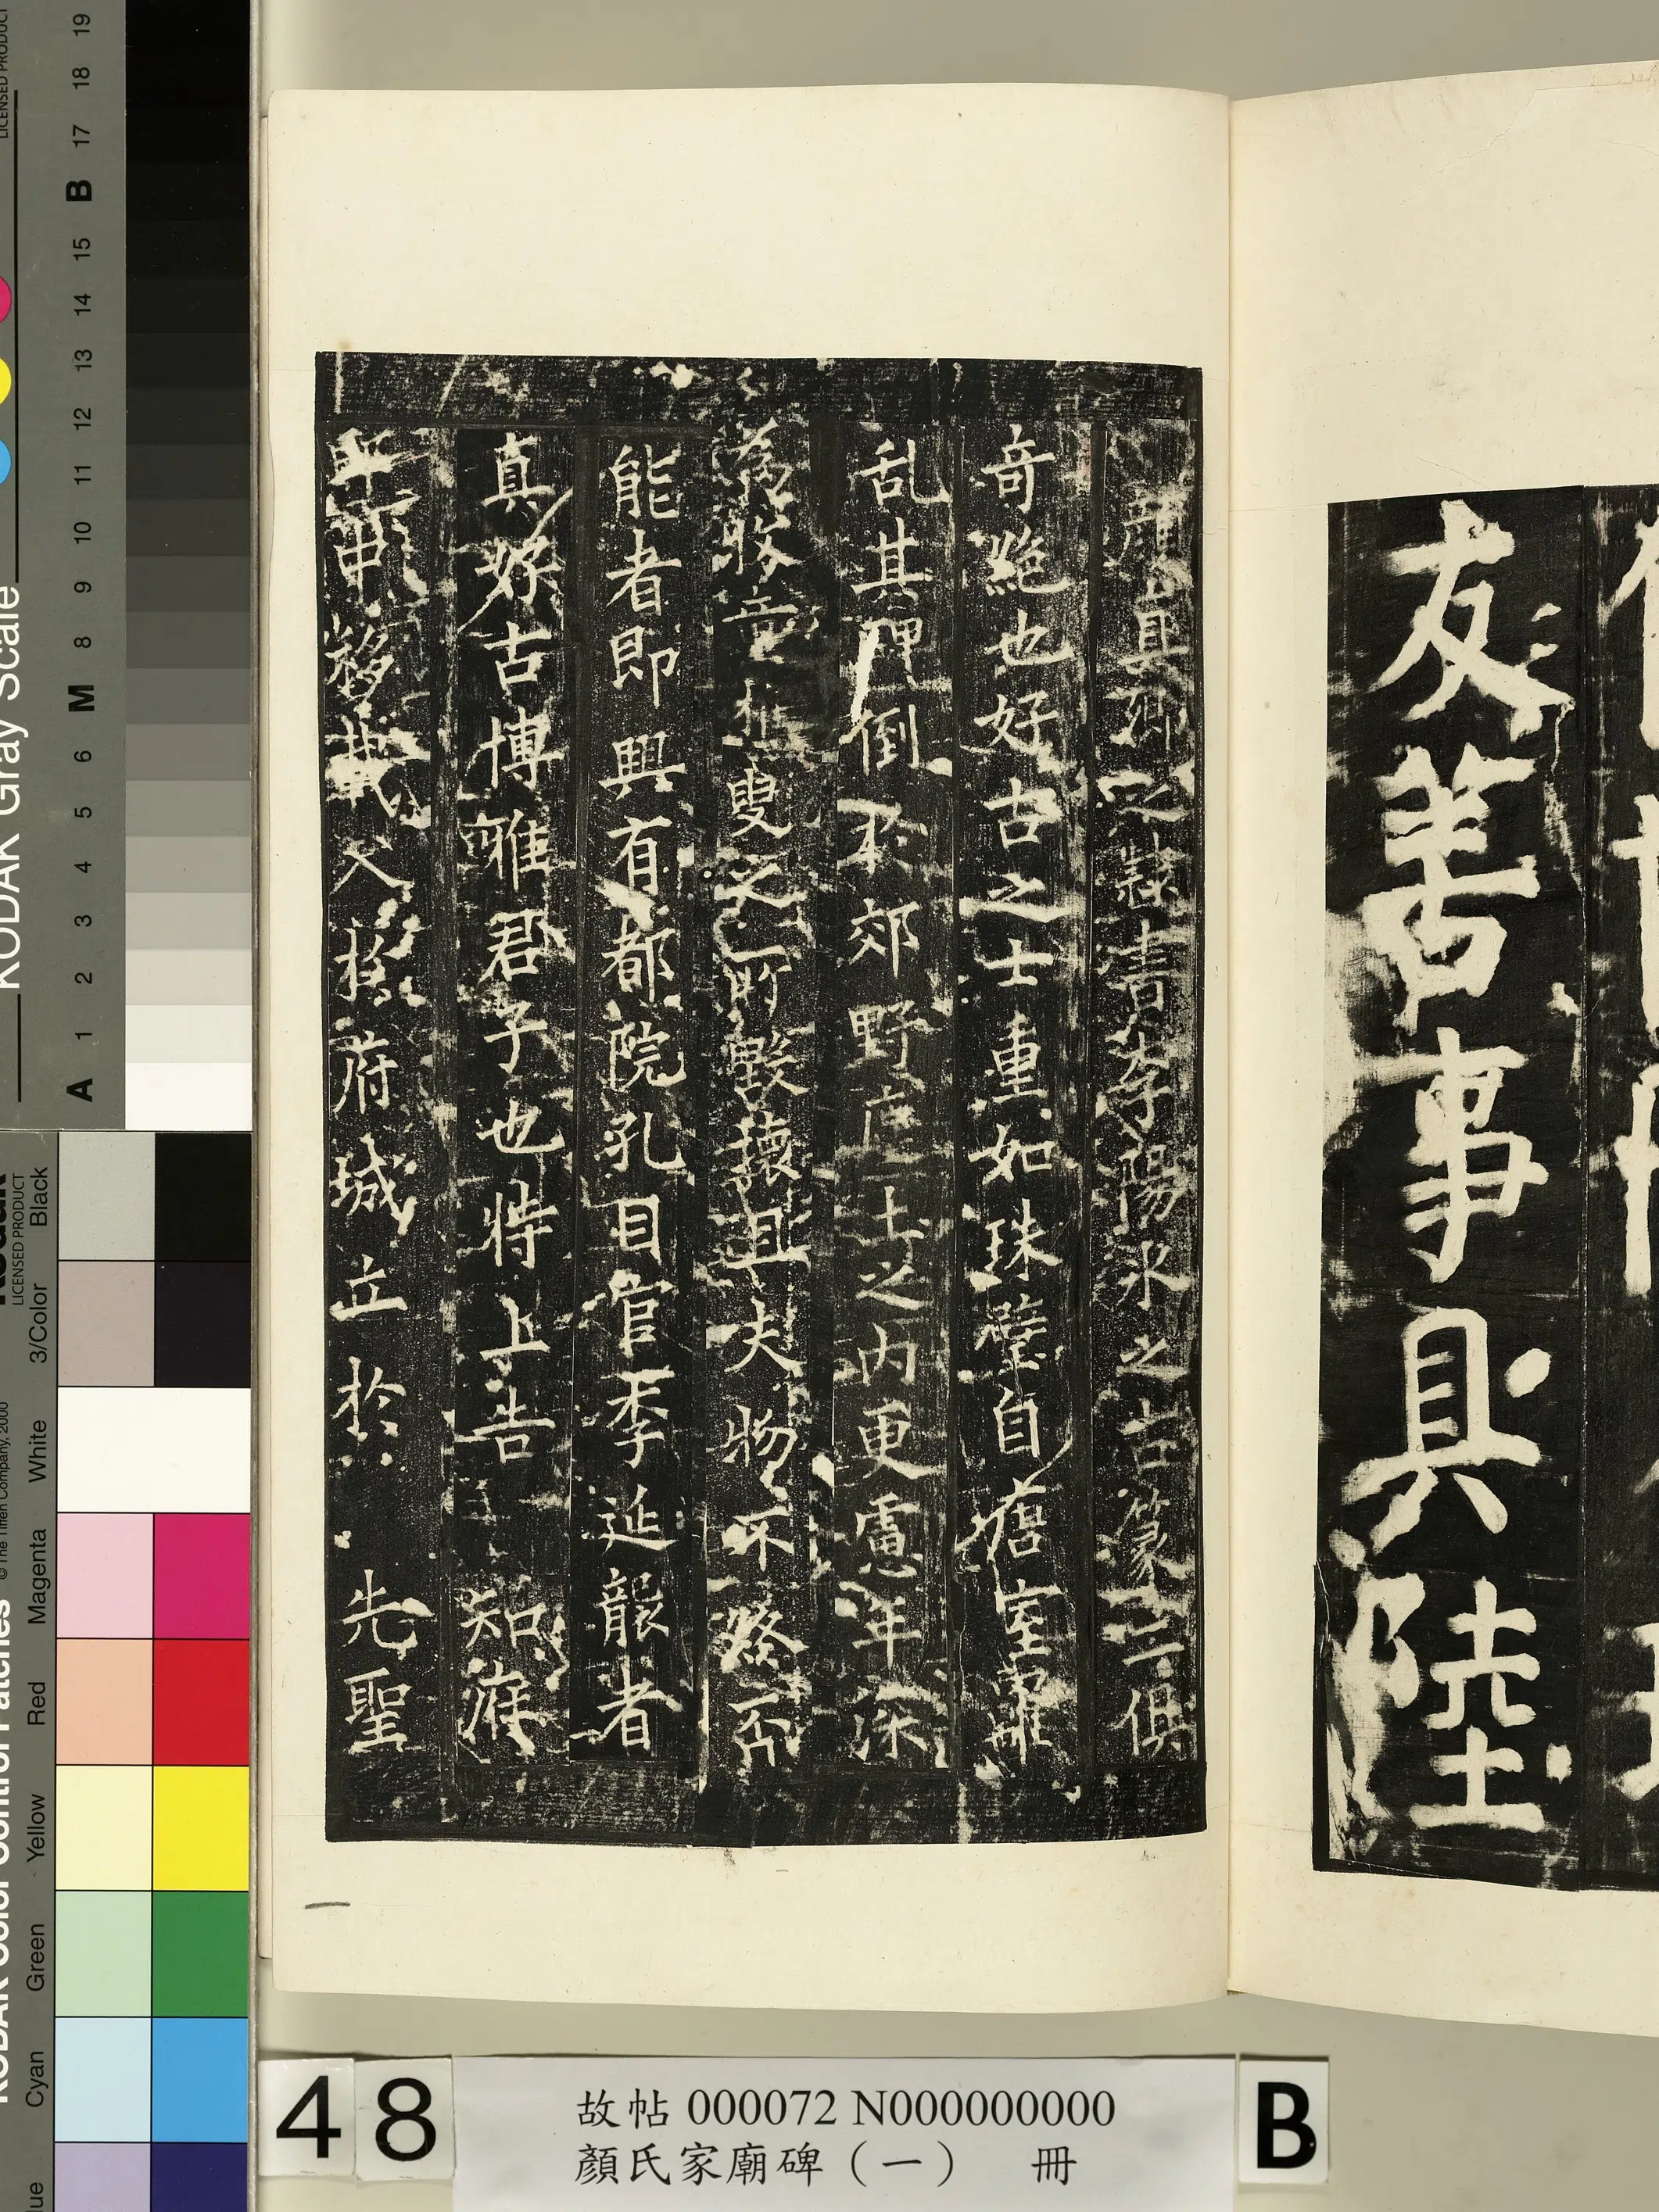 友善事具陸
顏真卿之隸書李陽冰之古篆二俱
奇絕也好古之士重如珠璧自唐室離
乱其碑倒於郊野塵土之內更慮年深
為牧童樵叟之所毀壞且夫物不終否
能者即興有都院孔目官李延龍者
真好古博雅君子也特上告 知府
郎中移載入於府城立於 先聖
48
故帖 000072 N000000000
顏氏家廟碑（一） 冊
B
KODAK Gray Scale
LICENSED PRODUCT
A 1 2 3 4 5 6 M 8 9 10 11 12 13 14 15 B 17 18 19
© The Tiffen Company, 2000
LICENSED PRODUCT
Cyan Green Yellow Red Magenta White 3/Color Black